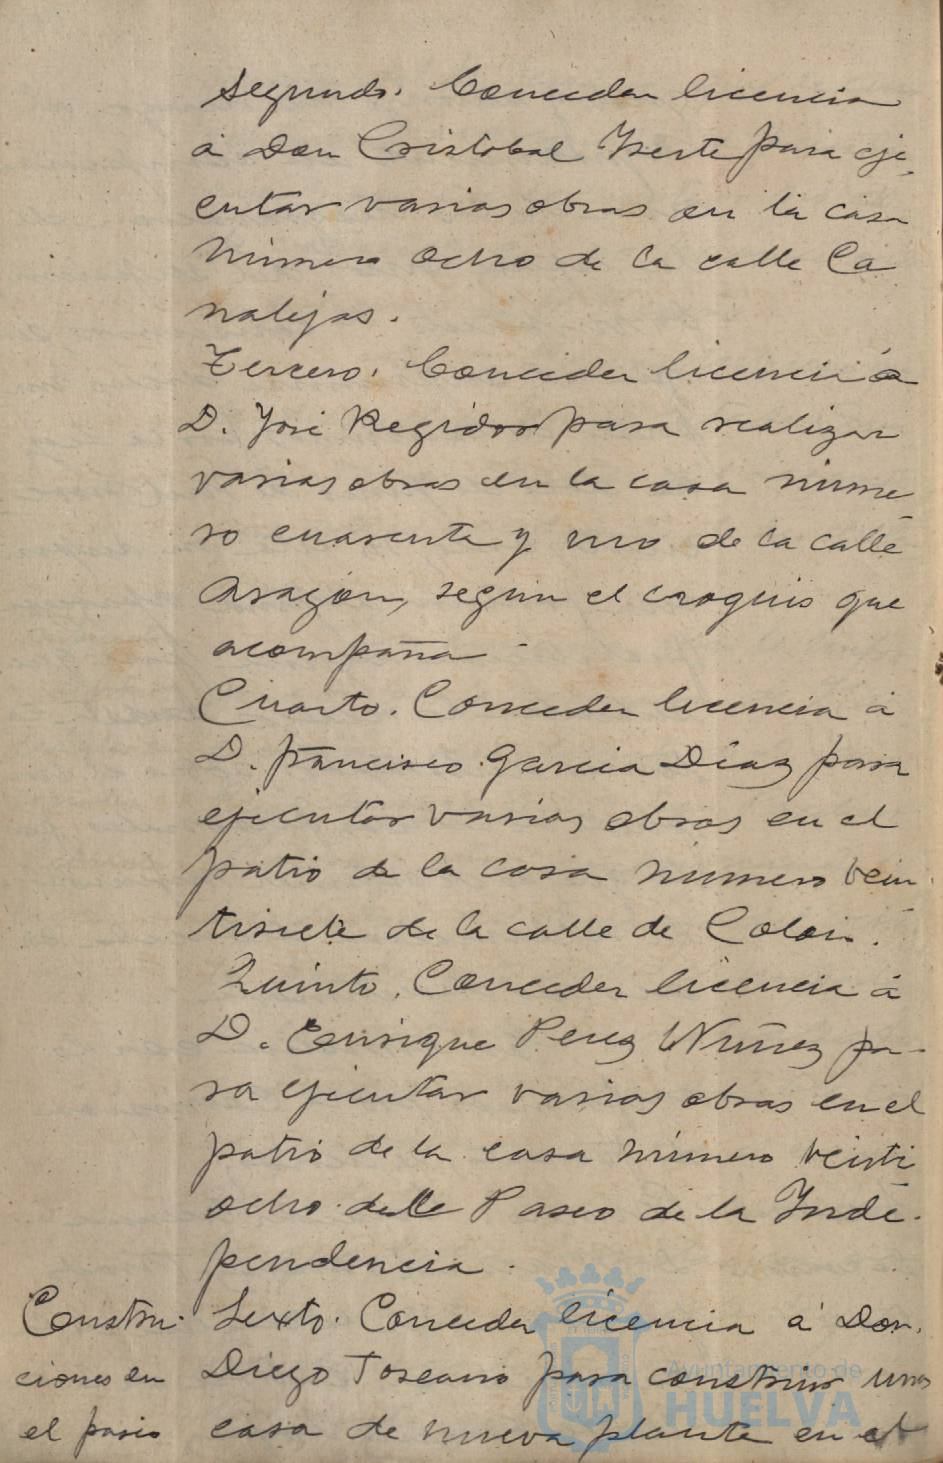 Segundo. Conceder licencia
á Don Cristobal Yserte para eje-
cutar varias obras en la casa
número ocho de la calle Ca
nalejas.
Tercero. Conceder licencia á
D. José Regidor para realizar
varias obras en la casa núme-
ro cuarenta y uno de la calle
Aragon, según el croquis que
acompaña.
Cuarto. Conceder licencia á
D. Francisco Garcia Díaz para
ejecutar varias obras en el
patio de la casa número vein-
tisiete de la calle de Colón.
Quinto. Conceder licencia á
D. Enrique Perez Núñez pa-
ra ejecutar varias obras en el
patio de la casa número veinti-
ocho del Paseo de la Ynde-
pendencia.
Construc-
ciones en
el paseo
Sexto. Conceder licencia á Don
Diego Toscano para construir una
casa de nueva planta en el
Ayuntamiento de
HUELVA